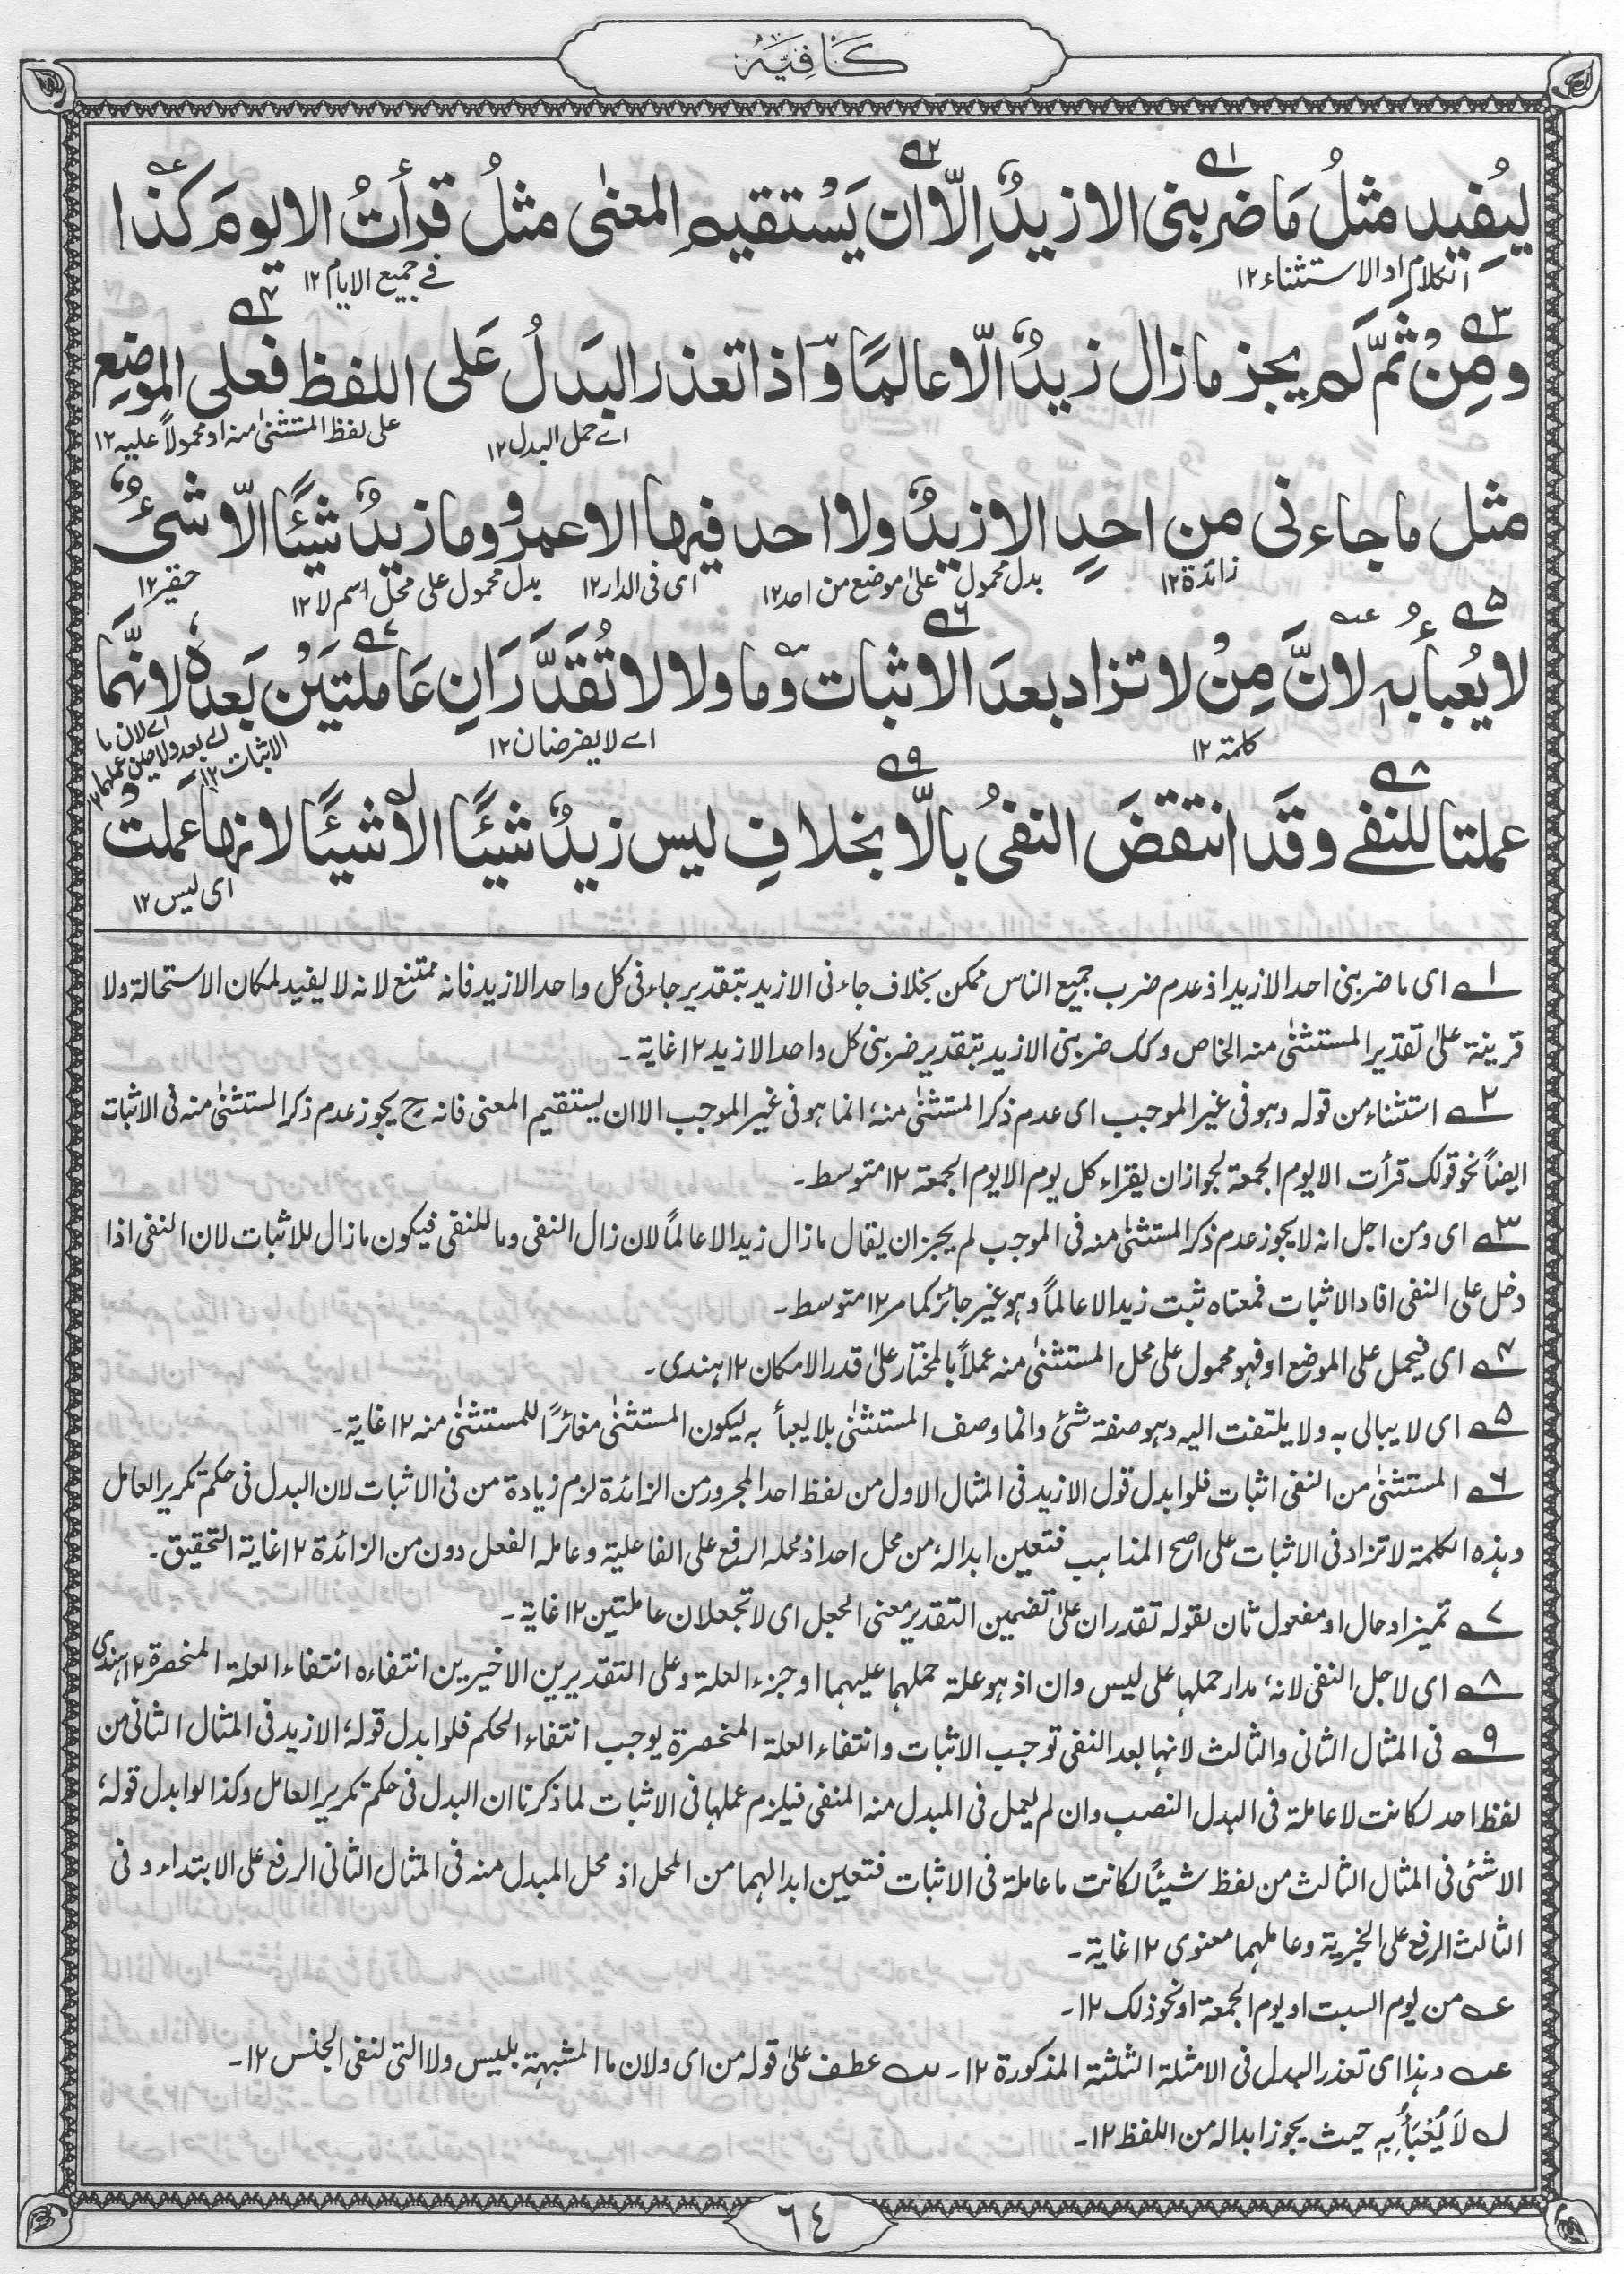 كَافِيَة
لِيُفِيد مثلُ مَا ضربنى الا زيدٌ اِلّا ان يَسْتقيم المعنٰى مثلُ قرأتُ الا يومَ كذا
الكلام او الاستثناء ١٢ فے جميع الايام ١٢
ومِنْ ثمَّ لَم يجز ما زال زيدٌ الّا عالمًا وّاذا تعذر البَدلُ عَلى اللفظ فعلى الموضِع
اے حمل البدل ١٢ على لفظ المستثنىٰ منه او محمولاً عليه ١٢
مثل ما جاءنى من احدٍ الا زيدٌ ولا احد فيها الا عمرٌو وما زيدٌ شيئًا الّا شىءٌ
زائدة ١٢ بدل محمول علىٰ موضع من احد ١٢ اى فى الدار ١٢ بدل محمول على محل اسم لا ١٢ حقير ١٢
لا يُعبأُ بِه لانَّ مِنْ لا تزاد بعدَ الاثبات وما ولا لا تُقَدَّرَانِ عَاملتَيْن بَعدهٗ لانَّهمَا
كلمة ١٢ اے لا يفرضان ١٢ اے بعد الاثبات ١٢ اے لان ما ولا
عملتا للنفے وقَد انتقضَ النفىُ بالّا بخلافِ ليس زيدٌ شيئًا الا شيئًا لانها عملتْ
اى ليس ١٢
١ اى ما ضربنى احد الا زيد اذ عدم ضرب جميع الناس ممكن بخلاف جاءنى الا زيد بتقدير جاءنى كل واحد الا زيد فانه ممتنع لانه لا يفيد لمكان الاستحالة ولا
قرينة علىٰ تقدير المستثنىٰ منه الخاص وكك ضربنى الا زيد بتقدير ضربنى كل واحد الا زيد ١٢ غاية۔
٢ استثناء من قوله وهو فى غير الموجب اى عدم ذكر المستثنىٰ منه؛ انما هو فى غير الموجب الا ان يستقيم المعنى فانه ح يجوز عدم ذكر المستثنىٰ منه فى الاثبات
ايضاً نحو قولك قرأت الا يوم الجمعة لجواز ان يقراء كل يوم الا يوم الجمعة ١٢ متوسط۔
٣ اى ومن اجل انه لا يجوز عدم ذكر المستثنىٰ منه فى الموجب لم يجز ان يقال ما زال زيد الا عالماً لان زال النفى وما للنفى فيكون ما زال للاثبات لان النفى اذا
دخل على النفى افاد الاثبات فمعناه ثبت زيد الا عالماً وهو غير جائز كما مر ١٢ متوسط۔
٤ اى فيحمل على الموضع او فهو محمول على محل المستثنىٰ منه عملاً بالمختار علىٰ قدر الامكان ١٢ هندى۔
٥ اى لا يبالى به ولا يلتفت اليه وهو صفة شئ وانما وصف المستثنىٰ بلا يعبأ به ليكون المستثنىٰ مغائراً للمستثنىٰ منه ١٢ غاية۔
٦ المستثنىٰ من النفى اثبات فلو ابدل قول الا زيد فى المثال الاول من لفظ احد المجرور من الزائدة لزم زيادة من فى الاثبات لان البدل فى حكم تكرير العامل
وهذه الكلمة لا تزاد فى الاثبات على اصح المذاهب فتعين ابداله، من محل احد اذ محله الرفع على الفاعلية وعامله الفعل دون من الزائدة ١٢ غاية التحقيق۔
٧ تميز او حال او مفعول ثان لقوله تقدران علىٰ تضمين التقدير معنى الجعل اى لا تجعلان عاملتين ١٢ غاية۔
٨ اى لاجل النفى لانه، مدار حملها على ليس وان اذ هو علة حملهما عليهما او جزء العلة وعلى التقديرين الاخيرين انتفاءه انتفاء العلة المنحصرة ١٢ هندى
٩ فى المثال الثانى والثالث لانها بعد النفى توجب الاثبات وانتفاء العلة المنحصرة يوجب انتفاء الحكم فلو ابدل قوله، الا زيد فى المثال الثانى من
لفظ احد لكانت لا عاملة فى البدل النصب وان لم يعمل فى المبدل منه المنفى فيلزم عملها فى الاثبات لما ذكرنا ان البدل فى حكم تكرير العامل وكذا لو ابدل قوله،
الا شئ فى المثال الثالث من لفظ شيئاً لكانت ما عاملة فى الاثبات فتعين ابدالهما من المحل اذ محل المبدل منه فى المثال الثانى الرفع على الابتداء وفى
الثالث الرفع على الخبرية وعاملهما معنوى ١٢ غاية۔
عه من يوم السبت او يوم الجمعة او نحو ذلك ١٢۔
عه وهذا اى تعذر البدل فى الامثلة الثلثة المذكورة ١٢۔ سه عطف علىٰ قوله من اى ولان ما المشبهة بليس ولا التى لنفى الجنس ١٢۔
له لَا يُعْبَأُ بِهٖ حيث يجوز ابداله من اللفظ ١٢۔
٦٤